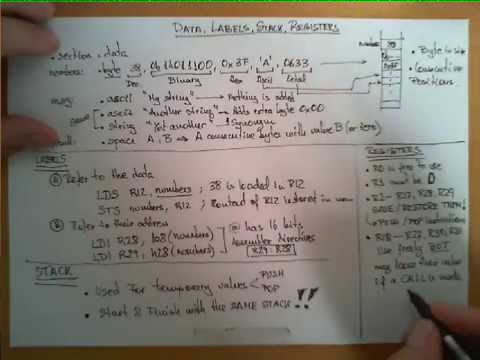 DATA, LABELS, STACK, REGISTERS
• section .data
numbers: .byte 38, 0b11011100, 0x3F, 'A', 0633
Dec. Binary Hex Ascii Octal
numbers:
38
0x3F
• Byte to size
• Consecutive
Positions
.ascii "My string" → Nothing is added
.asciz "Another string" → Adds extra byte 0x00
.string "Yet another" → Synonym
.space A, B ⇒ A consecutive bytes with value B (or zero)
LABELS
A Refer to the data
LDS R12, numbers ; 38 is loaded in R12
STS numbers, R12 ; Content of R12 is stored in mem
B Refer to their address
LDI R28, lo8(numbers)
LDI R29, hi8(numbers)
@ has 16 bits
Assembler directives
R29:R28
STACK
• Used for temporary values
PUSH
POP
• Start & Finish with the SAME STACK!!
REGISTERS
• R0 is free to use
• R1 must be 0
• R2–R17, R28, R29
SAVE/RESTORE THEM!
↳ PUSH / POP instructions
• R18–R27, R30, R31
Use freely BUT
may loose their value
if a CALL is made